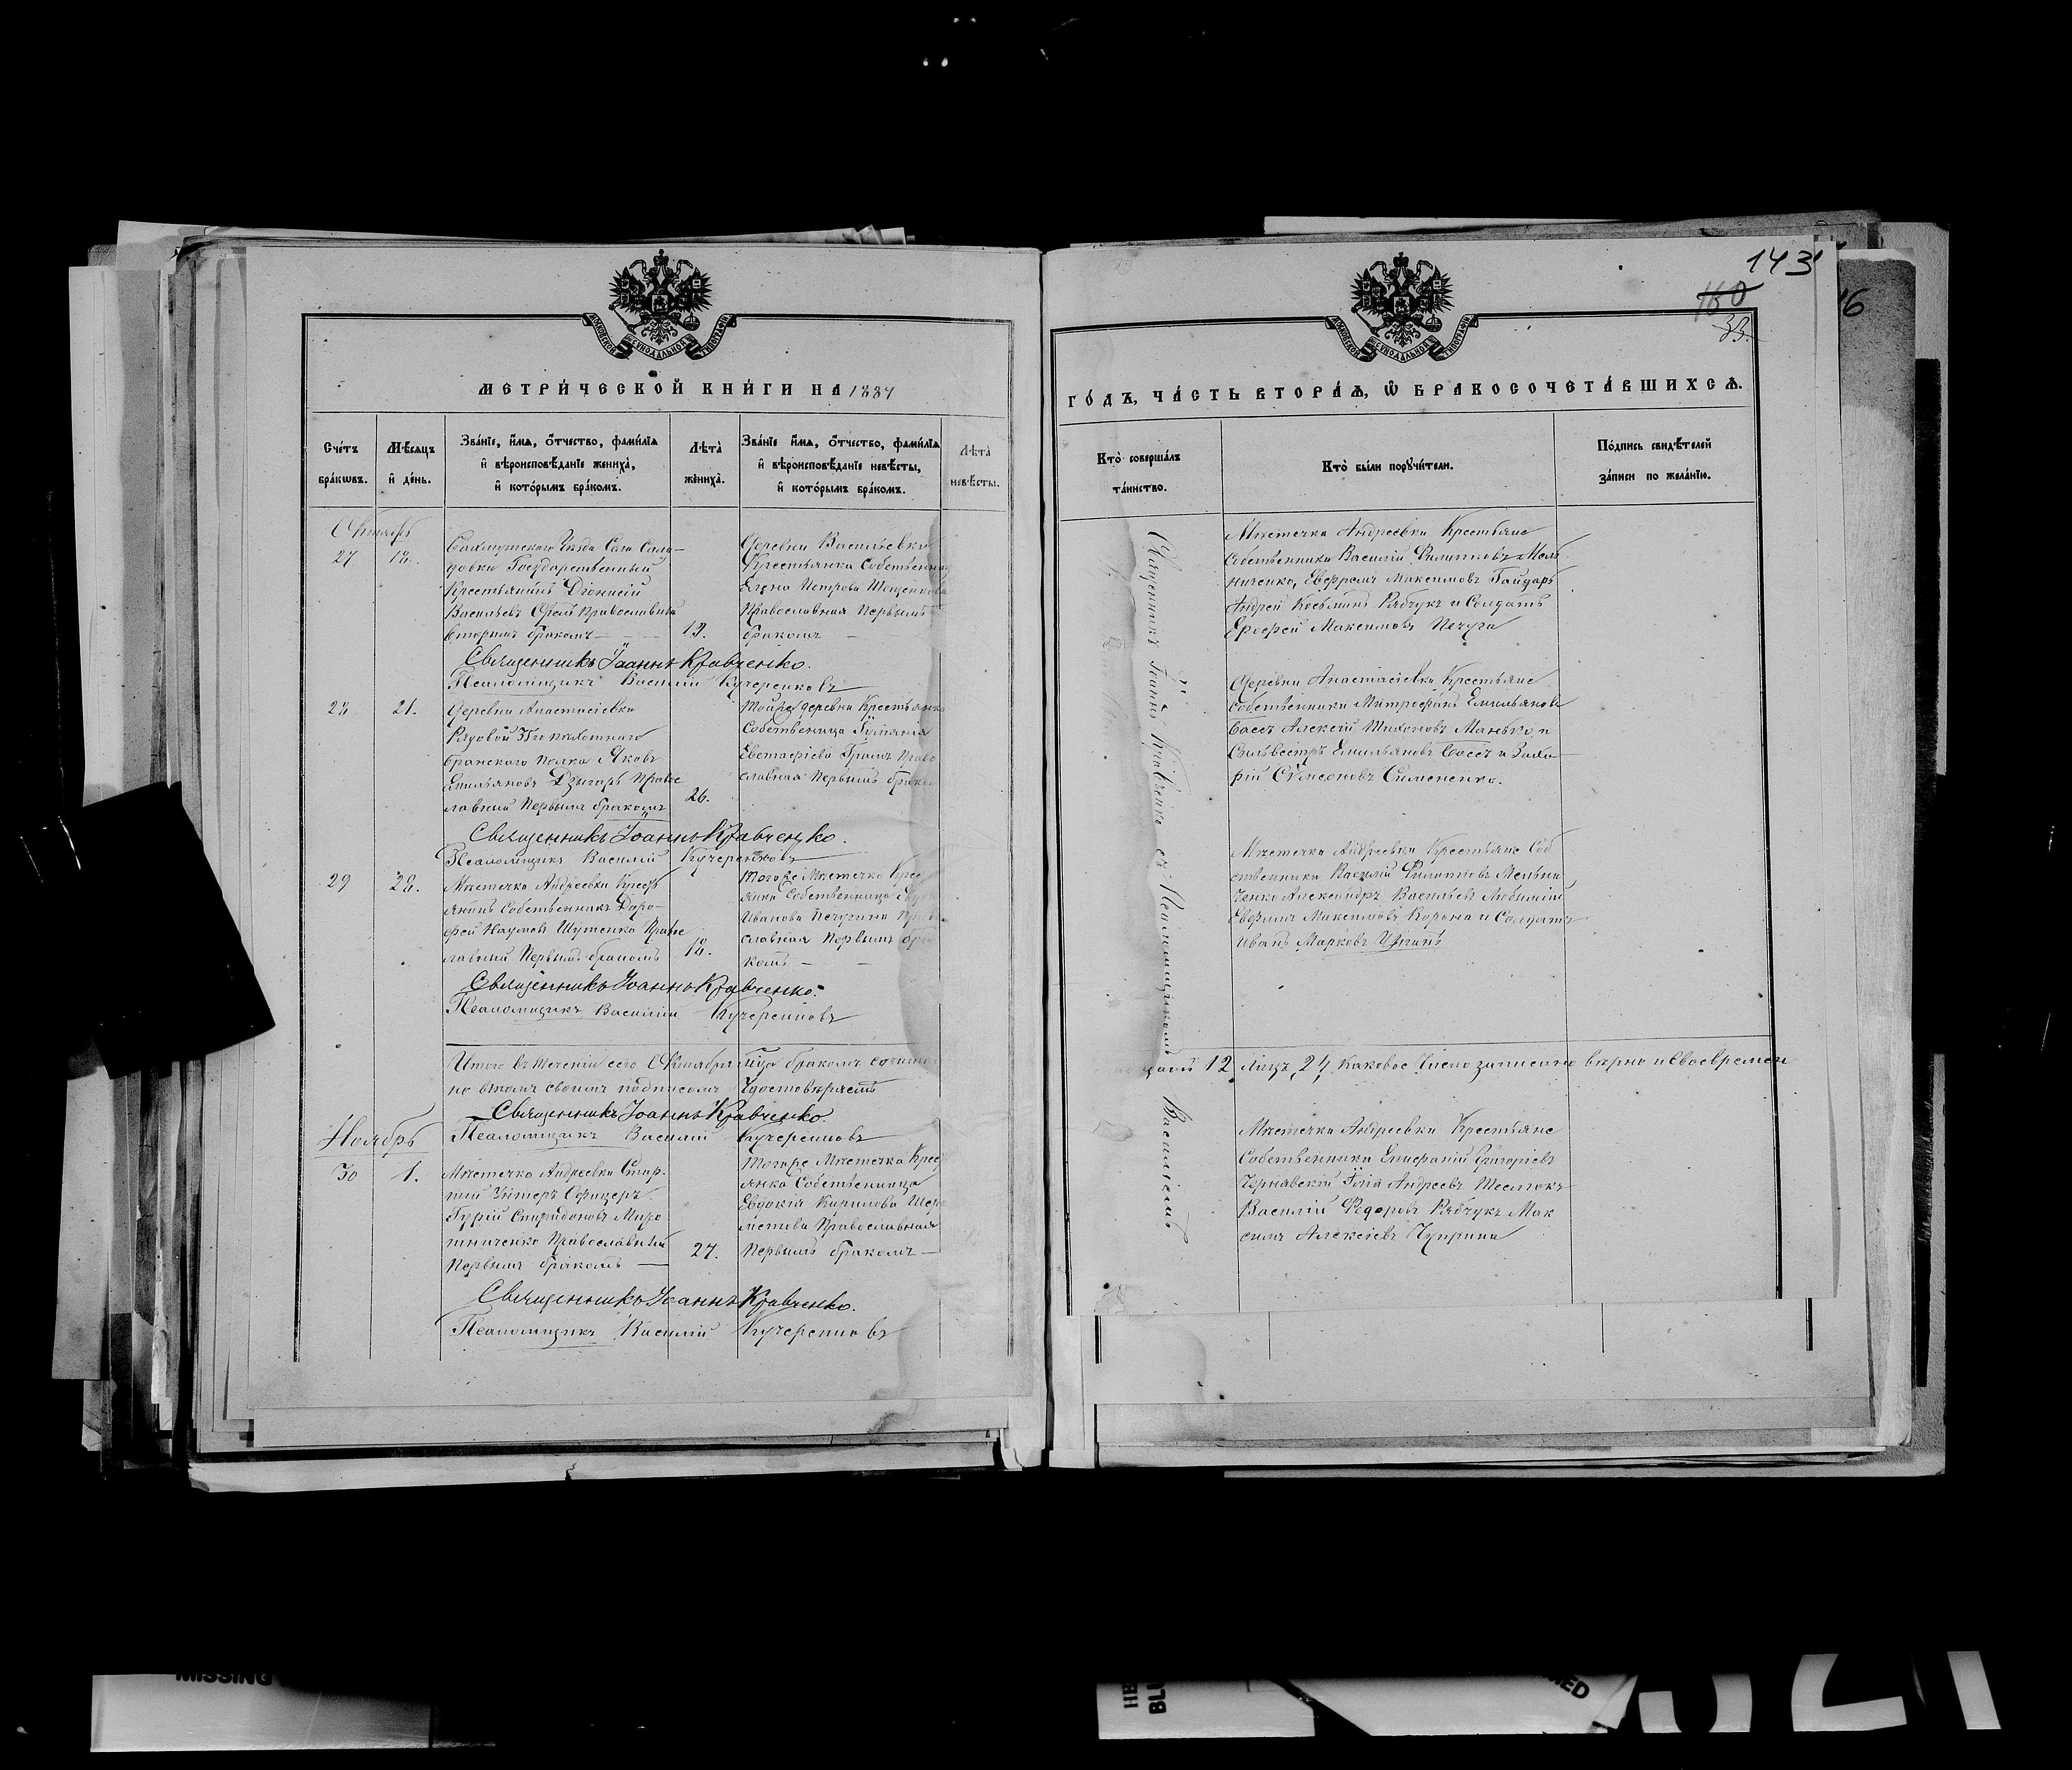 143
160
33.
16
МОСКОВСКОЙ СѴНОДАЛЬНОЙ ТИПОГРАФІИ
МЕТРИ́ЧЕСКОЙ КНИ́ГИ НА 1887
Сче́тъ бра́кωвъ.
Мѣ́сяцъ и҆ де́нь.
Зва́нїе, и҆́мя, ѻ҆́тчество, фами́лїя
и҆ вѣроисповѣ́данїе жениха̀,
и҆ кото́рымъ бра́комъ.
Лѣ́та жениха̀.
Зва́нїе и҆́мя, ѻ҆́тчество, фами́лїя
и҆ вѣроисповѣ́данїе невѣ́сты,
и҆ кото́рымъ бра́комъ.
Лѣ́та невѣ́сты.
Октябрь
27 18.
Бахмутскаго Уѣзда Села
Государственный
Крестьянинъ Діонисій
Васильевъ Православный
Вторымъ бракомъ
19.
Деревни Васильевки
Крестьянка Собственница
Елена Петрова
Православная Первымъ
бракомъ
Священникъ Іоаннъ Кравченко.
Псаломщикъ Василій Кучеренковъ
28 21.
Деревни Анастасіевки
Рядовой
полка Яковъ
Емильяновъ Дзыгарь Правос
лавный Первымъ бракомъ
26.
Тойже деревни Крестьянка
Собственница Іуліанія
Евстафіева Право
славная Первымъ брако
Священникъ Іоаннъ Кравченко.
Псаломщикъ Василій Кучеренковъ
29 28.
Мѣстечка Андреевки Крест
янинъ Собственникъ Доро-
фей Наумовъ Шутенко Правос
лавный Первымъ бракомъ
18.
Тогоже Мѣстечка Крест
янка Собственница
Иванова Печугина Право
славная Первымъ бра
комъ
Священникъ Іоаннъ Кравченко.
Псаломщикъ Василій Кучеренковъ
Итого въ теченіи сего Октября мѣсяца бракомъ сочита
но въ томъ своимъ подписомъ Удостовѣряемъ
Священникъ Іоаннъ Кравченко.
Псаломщикъ Василій Кучеренковъ
Ноябрь
30 1.
Мѣстечка Андреевки Стар-
шій Унтеръ Офицеръ
Гурій Спиридоновъ Миро
шниченко Православный
Первымъ бракомъ
27.
Тогоже Мѣстечка Крест
янка Собственница
Евдокія Кирилова Шере
метева Православная
Первымъ бракомъ
Священникъ Іоаннъ Кравченко.
Псаломщикъ Василій Кучеренковъ
МОСКОВСКОЙ СѴНОДАЛЬНОЙ ТИПОГРАФІИ
ГО́ДЪ, ЧА́СТЬ ВТОРА́Ѧ, Ѡ҆ БРАКОСОЧЕТА́ВШИХСѦ.
Кто̀ соверша́лъ та́инство.
Кто̀ бы́ли порꙋчи́тели.
По́дпись свидѣ́телей за́писи по жела́нїю.
Священникъ Іоаннъ Кравченко съ Псаломщикомъ Василіемъ
Мѣстечка Андреевки Крестьяне
Собственники Василій Филиповъ Мель
ниченко, Евфремъ Максимовъ Гайдарь
Андрей Косьминъ Рябчукъ и Солдатъ
Ерофей Максимовъ Печуга
Деревни Анастасіевки Крестьяне
Собственники Митрофанъ Емильяновъ
Бассъ Алексій Тихоновъ Манько, и
Сильвестръ Емильяновъ Бассъ и Заха
рій Симеоновъ Симоненко.
Мѣстечка Андреевки Крестьяне Соб
ственники Василій Филиповъ Мельни
ченко Александръ Васильевъ Любимій
Евфимъ Максимовъ Корона и Солдатъ
Иванъ Марковъ Цыганъ
12 лицъ 24 Каковое Число записано вѣрно и Своевремен
Мѣстечка Андреевки Крестьяне
Собственники Епифаній Григоріевъ
Чернявскій Ілія Андреевъ Шеслюкъ
Василій Ѳедоровъ Рябчукъ Мак
симъ Алексіевъ Чуприна
MISSING